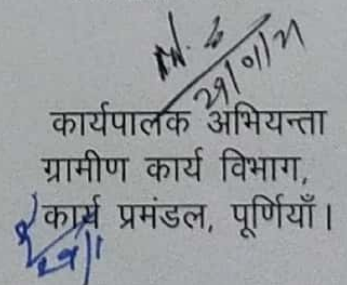 29/01/21
कार्यपालक अभियन्ता
ग्रामीण कार्य विभाग,
कार्य प्रमंडल, पूर्णियाँ।
29/1